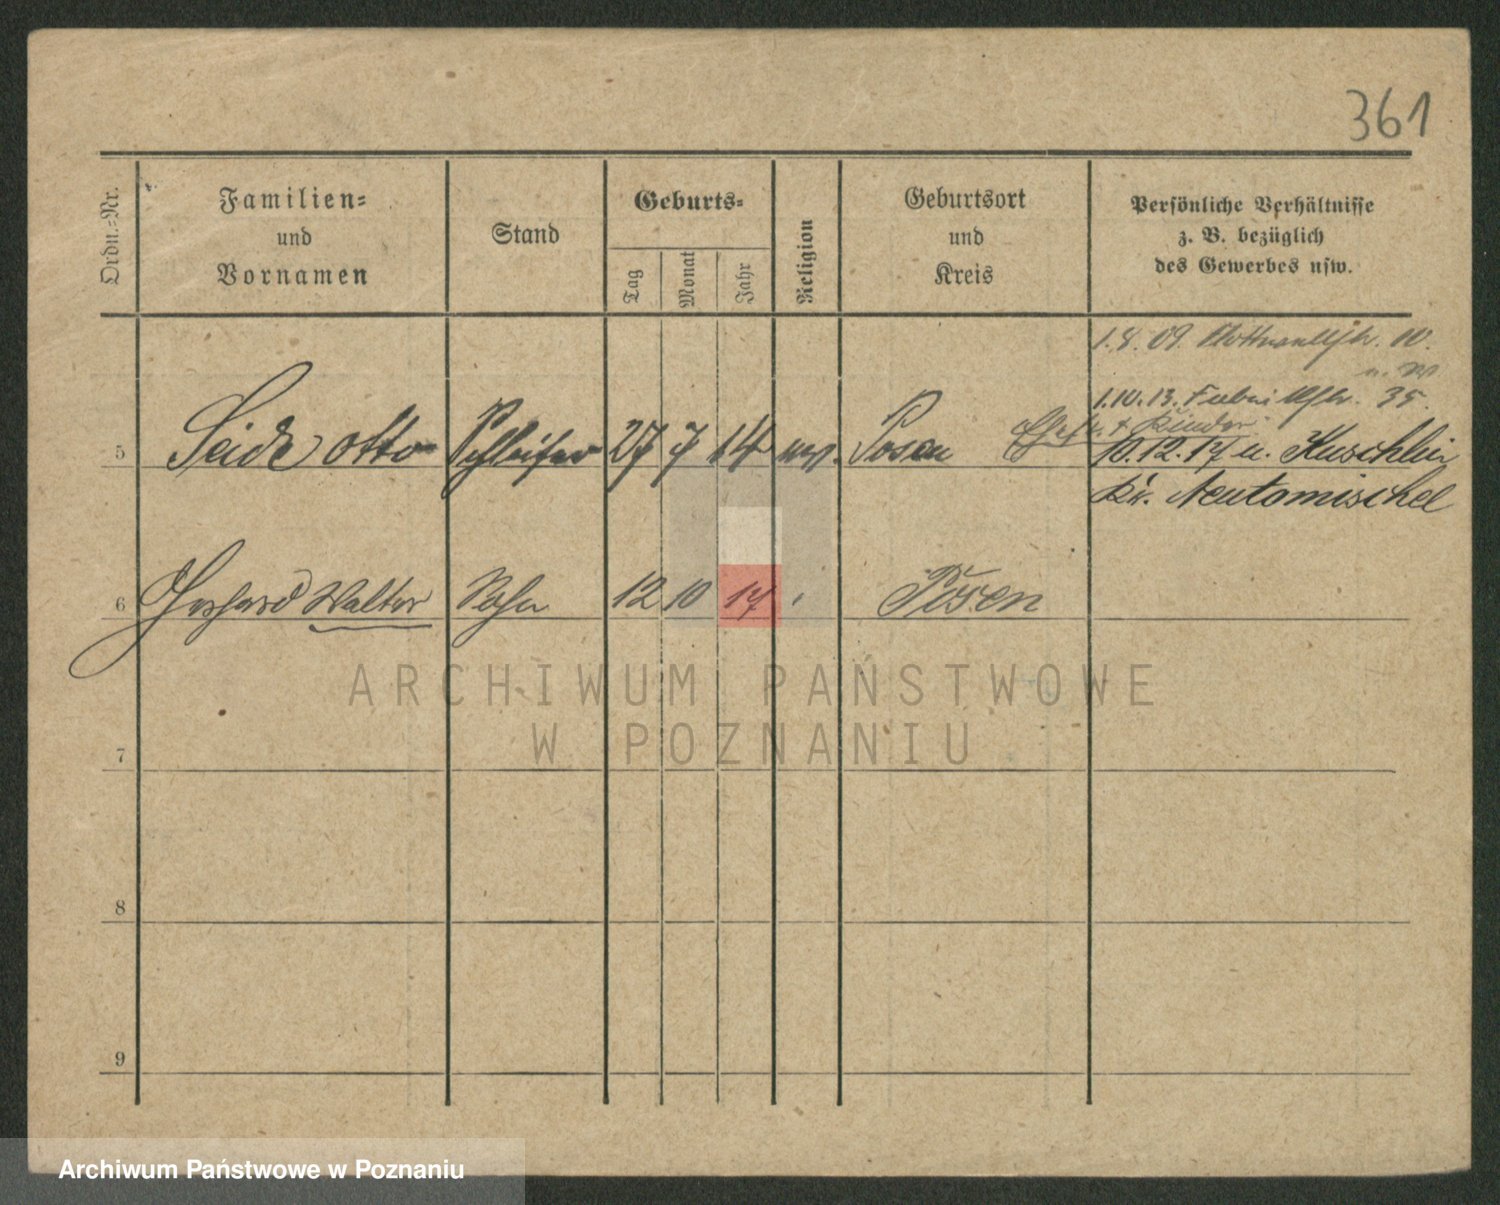 361
Ordn.-Nr.
Familien-
und
Vornamen
Stand
Geburts-
Tag
Monat
Jahr
Religion
Geburtsort
und
Kreis
Persönliche Verhältnisse
z. B. bezüglich
des Gewerbes usw.
1.8.09. 10.
1.10.13. 35.
Ehefr. + Kinder
5 Seide Otto Schleifer 27 7 14 Posen 10.12.17 n. Kuschlin
Kr. Neutomischel
6 Gerhard Walter 12 10 17 Posen
ARCHIWUM PAŃSTWOWE
W POZNANIU
7
8
9
Archiwum Państwowe w Poznaniu